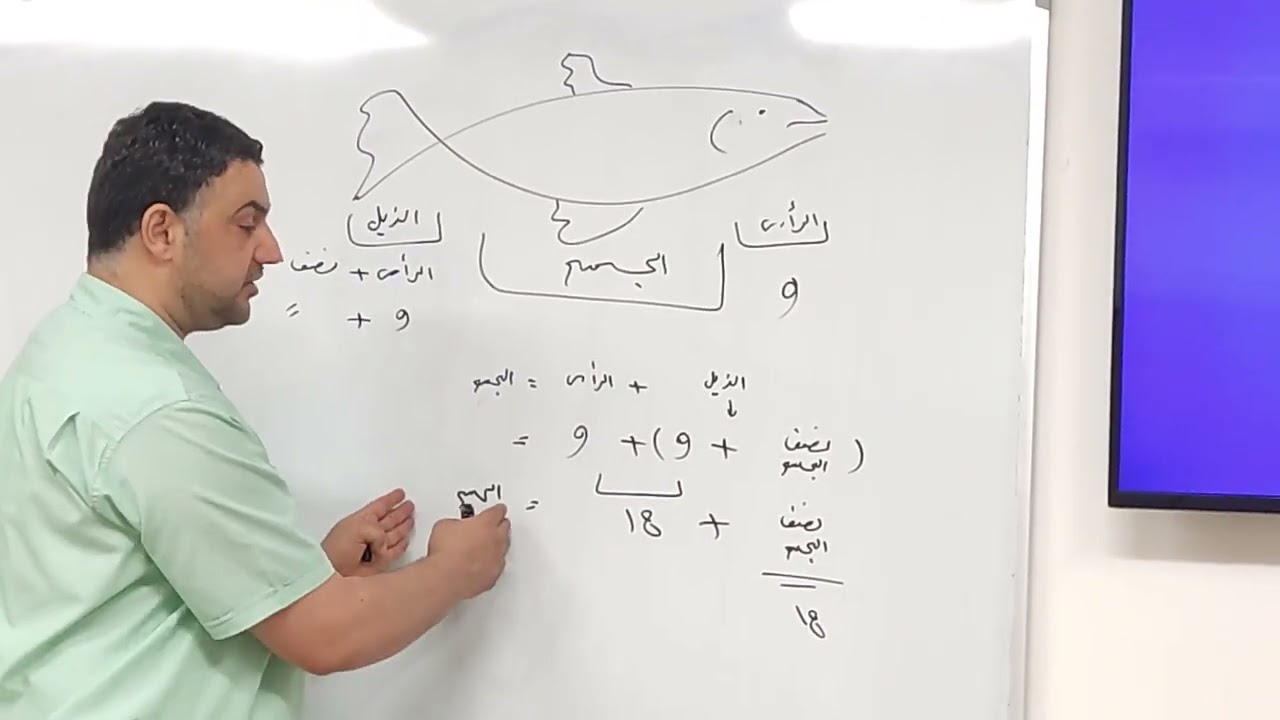 الرأس
الذيل
الجسم
9
الرأس + نصف
9 + =
الذيل + الرأس = الجسم
( نصف الجسم + 9 ) + 9 =
نصف الجسم + 18 = الجسم
18